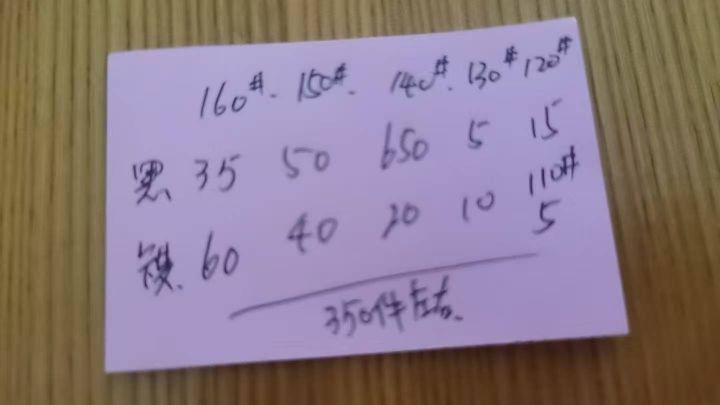 160#. 150#. 140#. 130# 120#
黑、35 50 650 5 15
110#
60 40 20 10 5
350件左右、